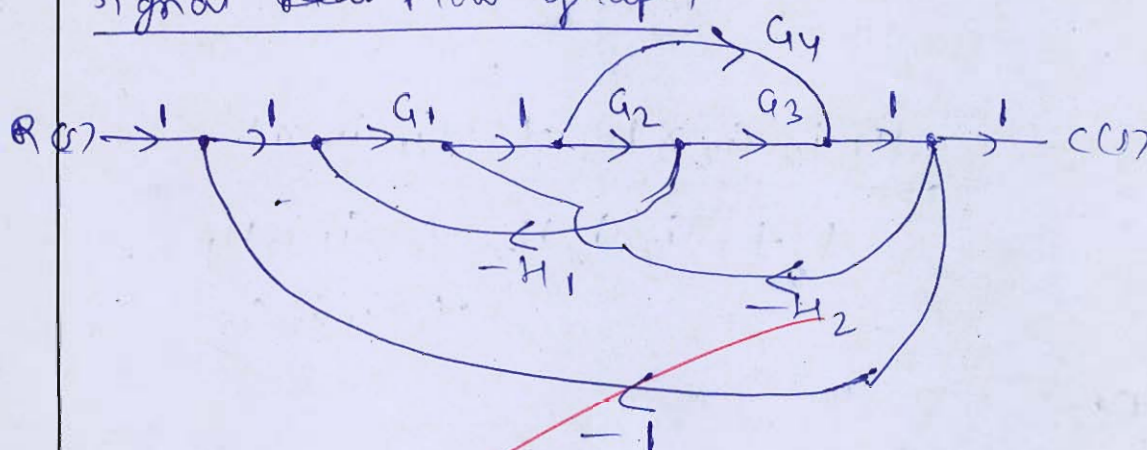 signal flow graph
G4
1 1 G1 1 G2 G3 1 1
R(s) C(s)
-H1
-H2
-1